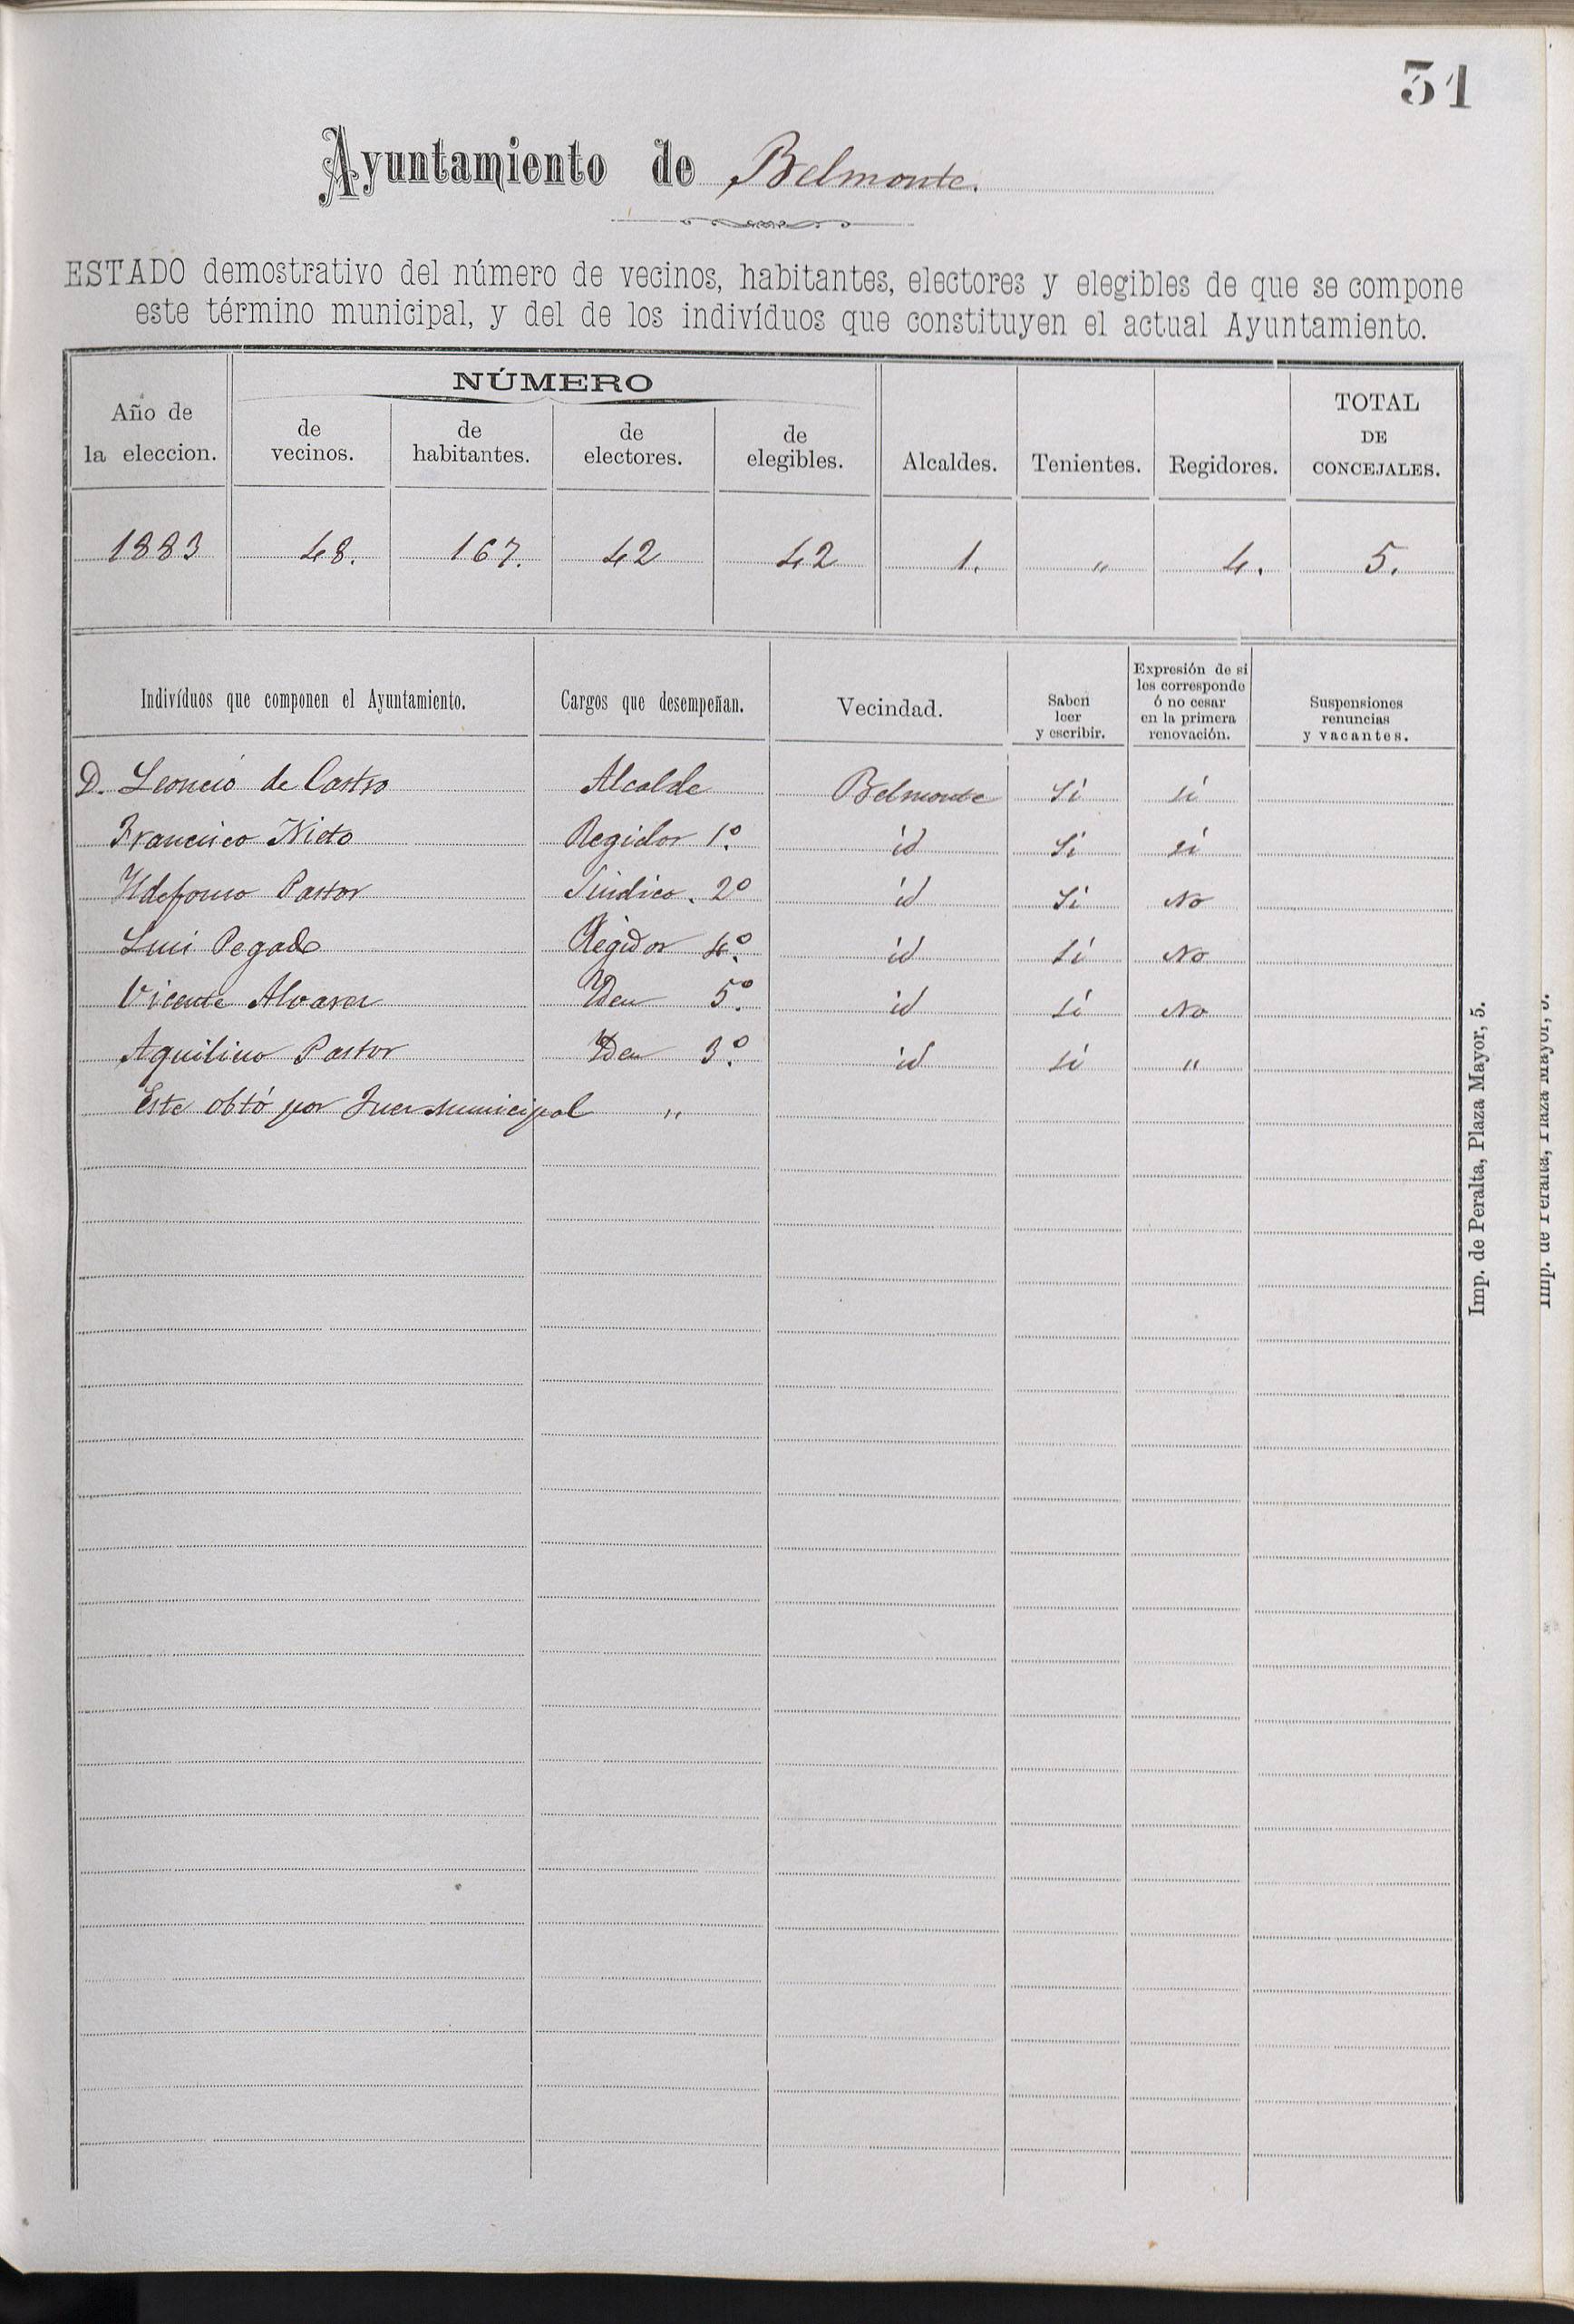 31
Ayuntamiento de Belmonte.
ESTADO demostrativo del número de vecinos, habitantes, electores y elegibles de que se compone
este término municipal, y del de los indivíduos que constituyen el actual Ayuntamiento.
Año de la eleccion.
NÚMERO
de vecinos.
de habitantes.
de electores.
de elegibles.
Alcaldes.
Tenientes.
Regidores.
TOTAL DE CONCEJALES.
1883 48. 167. 42 42 1. " 4. 5.
Indivíduos que componen el Ayuntamiento.
Cargos que desempeñan.
Vecindad.
Saben leer y escribir.
Expresión de si les corresponde ó no cesar en la primera renovación.
Suspensiones renuncias y vacantes.
D. Leoncio de Castro Alcalde Belmonte Si si
Francisco Nieto Regidor 1.º id Si si
Ildefonso Pastor Sindico. 2º id Si No
Luis Pegado Regidor 4.º id si No
Vicente Alvarez Idem 5.º id si No
Aquilino Pastor Idem 3.º id si "
Este obtó por Juez municipal "
Imp. de Peralta, Plaza Mayor, 5.
Imp. de Peralta, Plaza Mayor, 5.